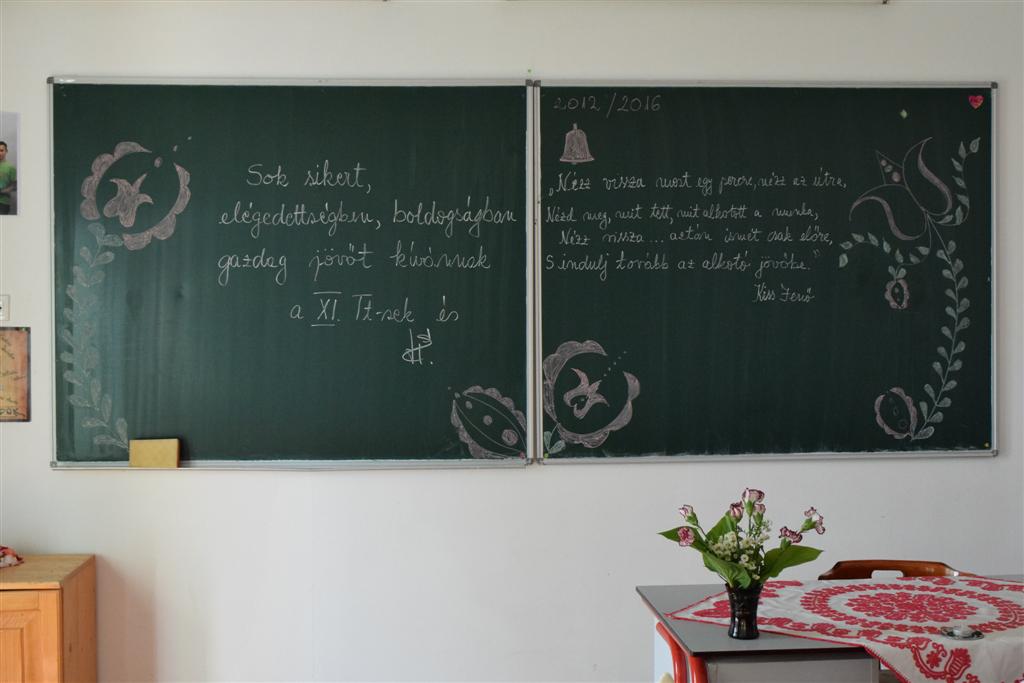 Sok sikert,
elégedettségben, boldogságban
gazdag jövőt kívánnak
a XI. Tt-sek és
2012/2016
„Nézz vissza most egy percre, nézz az útra,
Nézd meg, mit tett, mit alkotott a munka,
Nézz vissza... aztán ismét csak előre,
S indulj tovább az alkotó jövőbe."
Kiss Jenő